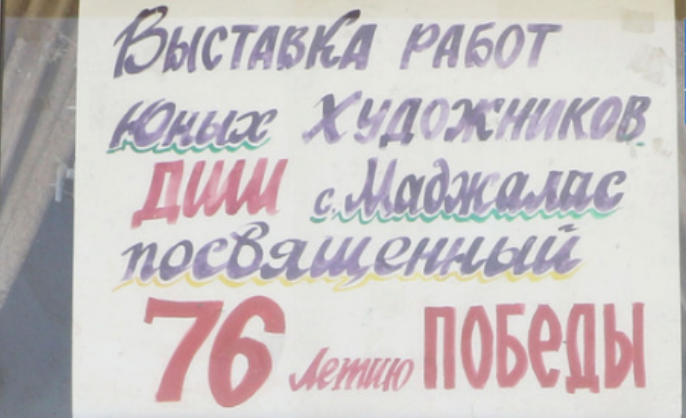 Выставка работ
Юных Художников
ДШИ с. Маджалис
посвященный
76 летию ПОБЕДЫ